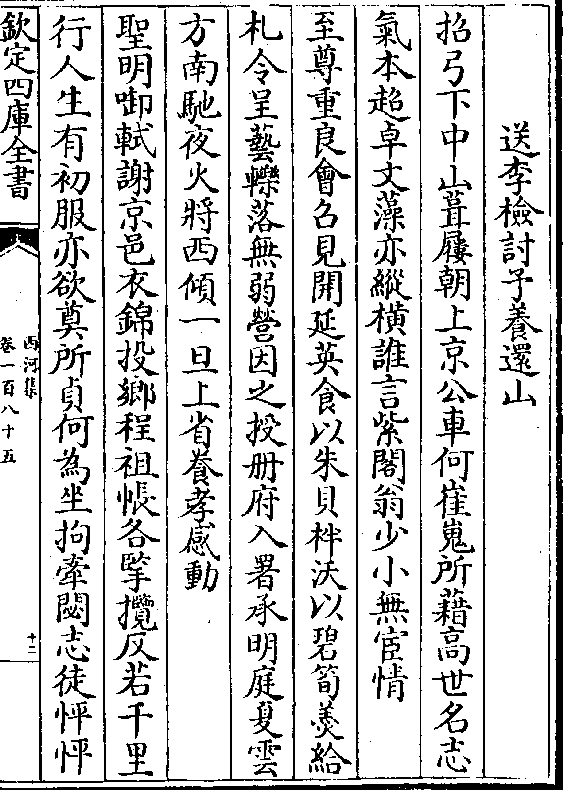 送李檢討子養還山
招弓下中山葺屨朝上京公車何崔嵬所藉高世名志
氣本超卓文藻亦縱橫誰言紫閣翁少小無宦情
至尊重良會召見開延英食以朱貝柈沃以碧筍羹給
札令呈藝轢落無弱營因之授册府入署承明庭夏雲
方南馳夜火將西傾一旦上省養孝感動
聖明啣軾謝京邑衣錦投鄉程祖帳各掔攬反若千里
行人生有初服亦欲奠所貞何為坐拘牽閟志徒怦怦
欽定四庫全書
西河集
卷一百八十五
十二